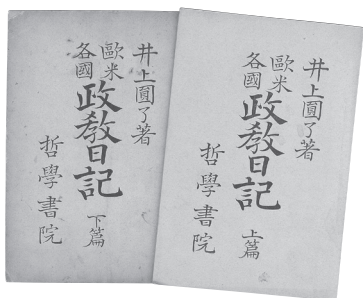 井上圓了著
歐米
各國
政教日記
上篇
哲學書院
井上圓了著
歐米
各國
政教日記
下篇
哲學書院